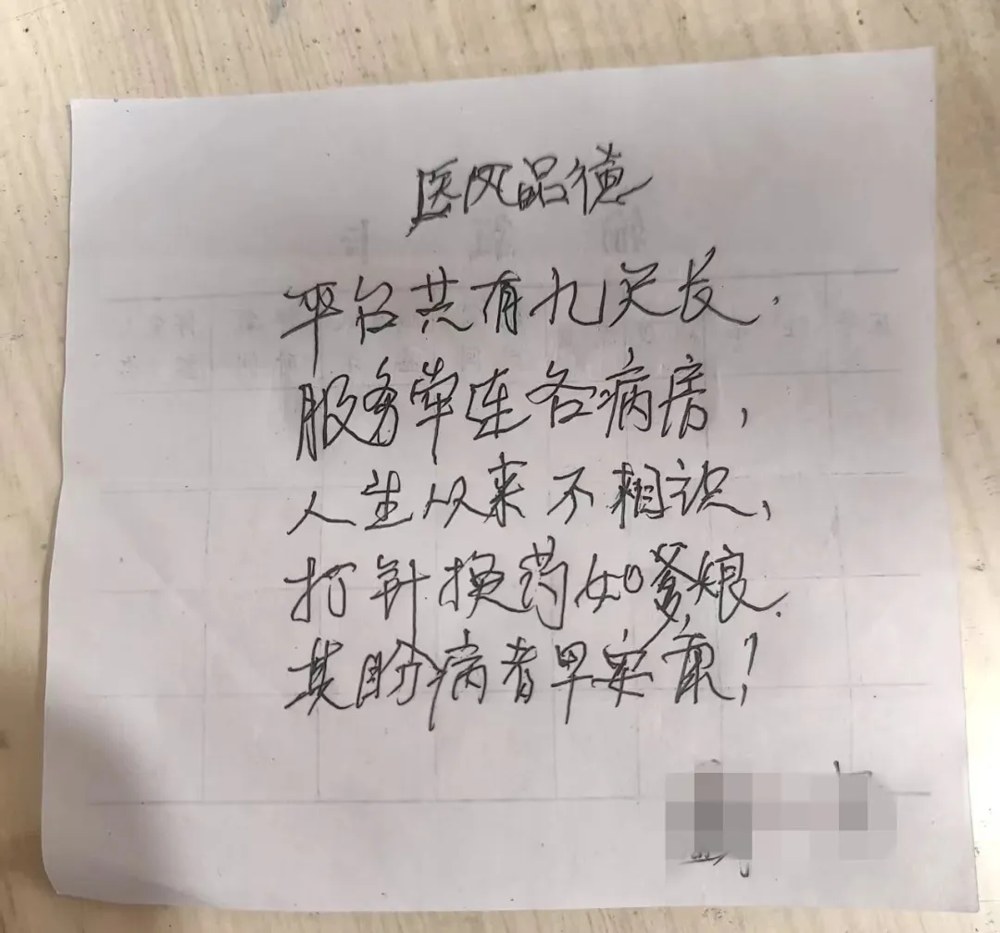 医风品德
平台共有九尺长,
服务牵连各病房,
人生从来不相识,
打针换药如爹娘.
其盼病者早安康!